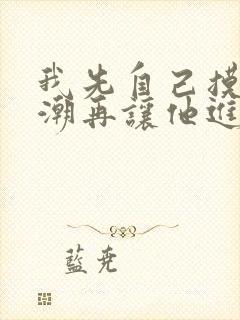 我先自己摸
潮再讓他進
藍尭